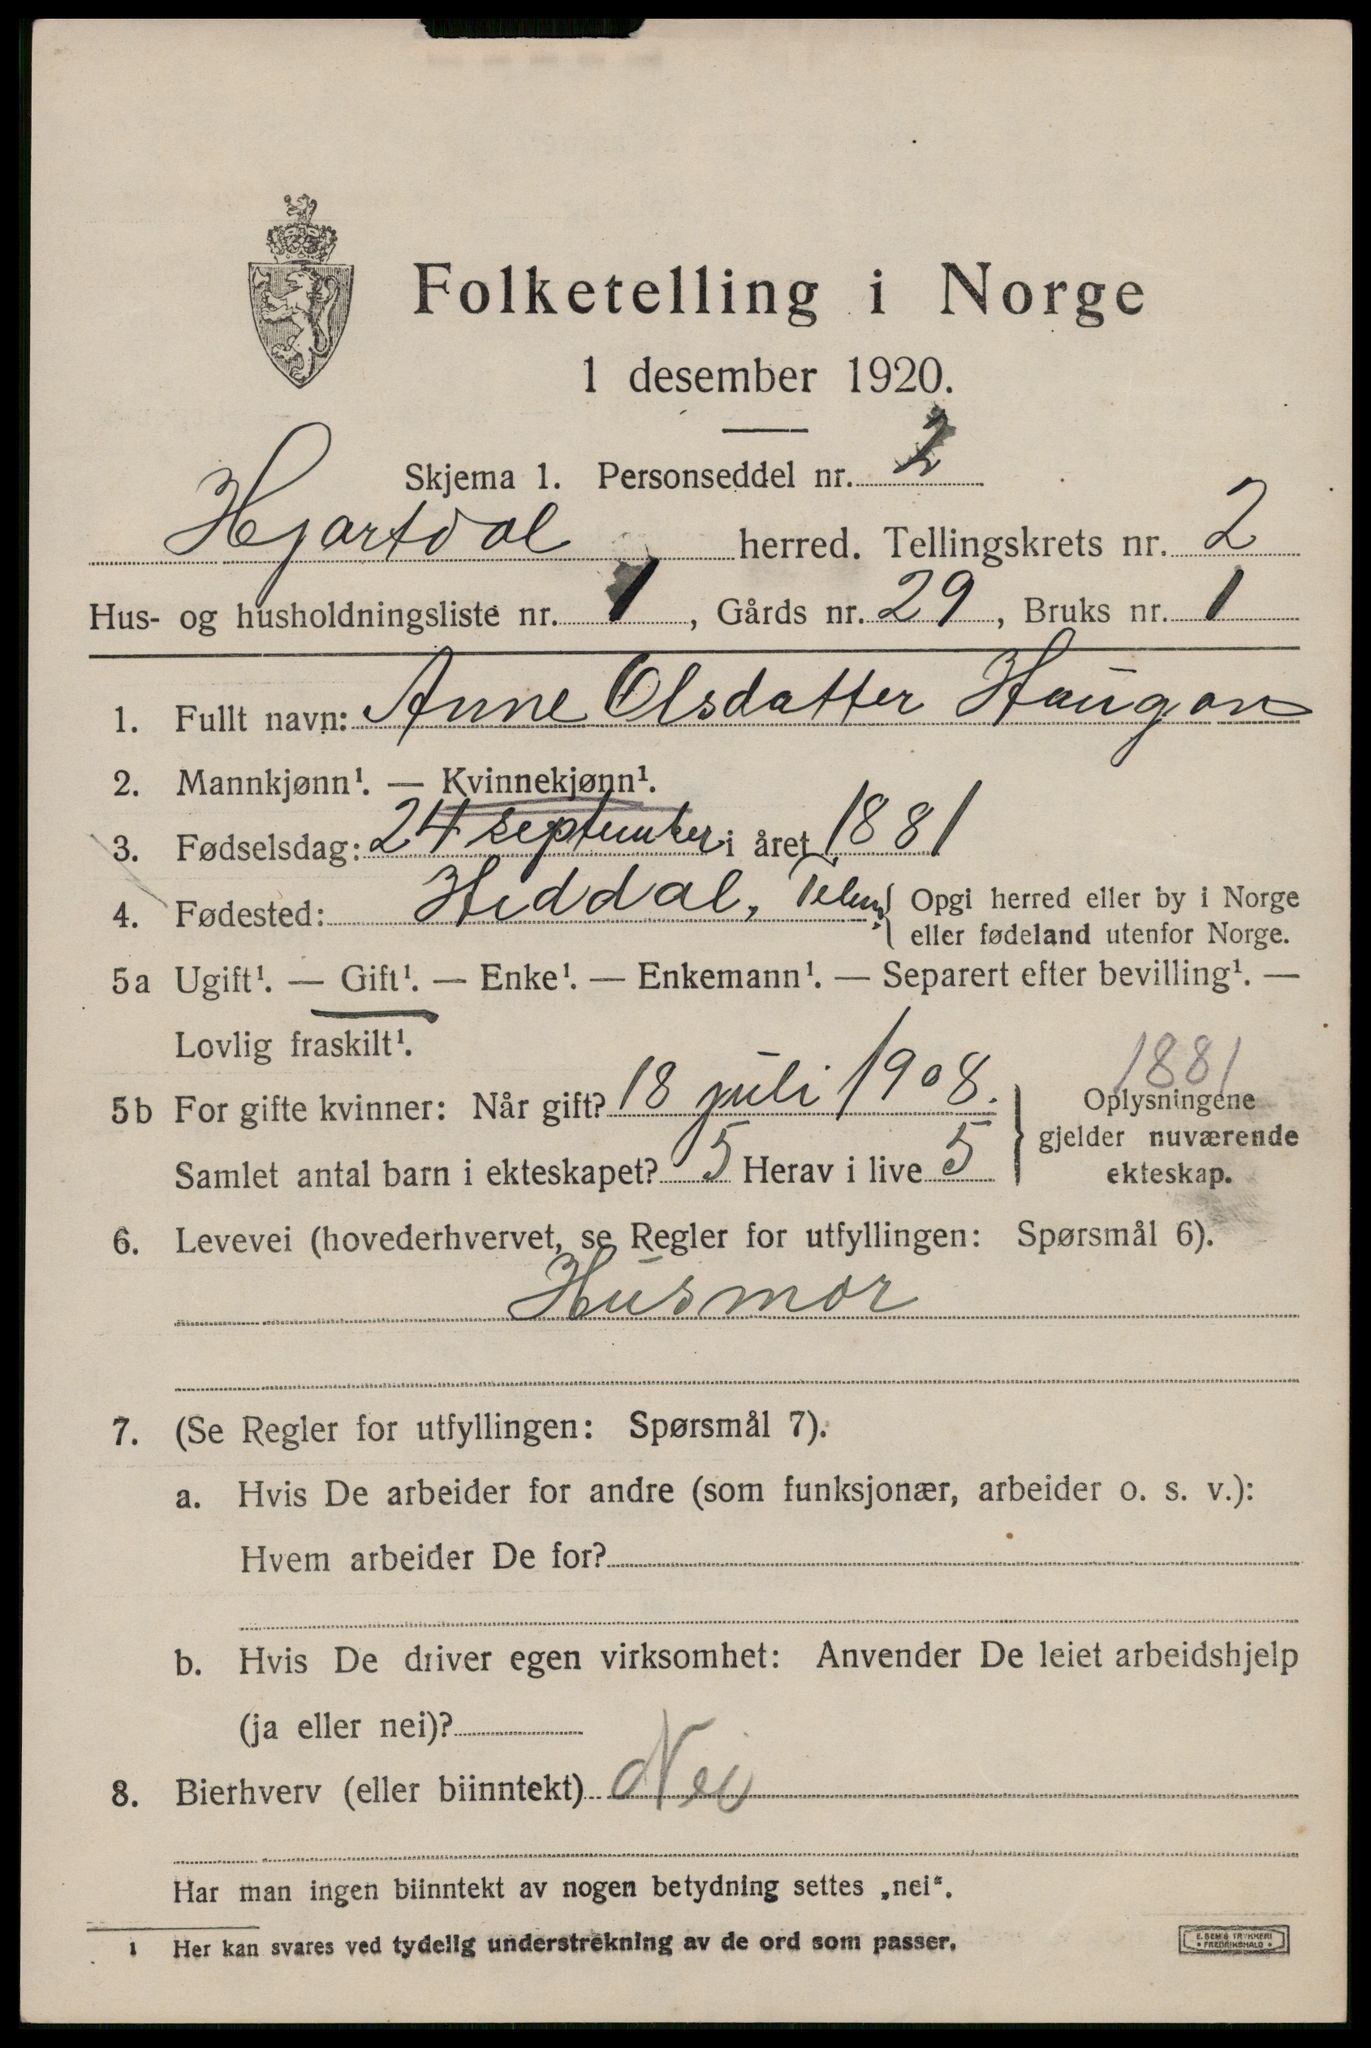 Folketelling i Norge
1 desember 1920.
Skjema 1. Personseddel nr. 2
Hjartdal herred. Tellingskrets nr. 2
Hus- og husholdningsliste nr. 1, Gårds nr. 29, Bruks nr. 1
1. Fullt navn: Anne Olsdatter Haugan
2. Mannkjønn¹. — Kvinnekjønn¹.
3. Fødselsdag: 24 september i året 1881
4. Fødested: Hiddal, Telem. { Opgi herred eller by i Norge
eller fødeland utenfor Norge.
5a Ugift¹. — Gift¹. — Enke¹. — Enkemann¹. — Separert efter bevilling¹. —
Lovlig fraskilt¹.
1881
5b For gifte kvinner: Når gift? 18 juli 1908. } Oplysningene
gjelder nuværende
Samlet antal barn i ekteskapet? 5 Herav i live 5 ekteskap.
6. Levevei (hovederhvervet, se Regler for utfyllingen: Spørsmål 6).
Husmor
7. (Se Regler for utfyllingen: Spørsmål 7).
a. Hvis De arbeider for andre (som funksjonær, arbeider o. s. v.):
Hvem arbeider De for?
b. Hvis De driver egen virksomhet: Anvender De leiet arbeidshjelp
(ja eller nei)?
8. Bierhverv (eller biinntekt) Nei
Har man ingen biinntekt av nogen betydning settes „nei".
1 Her kan svares ved tydelig understrekning av de ord som passer.
E. SEM'S TRYKKERI
• FREDRIKSHALD •